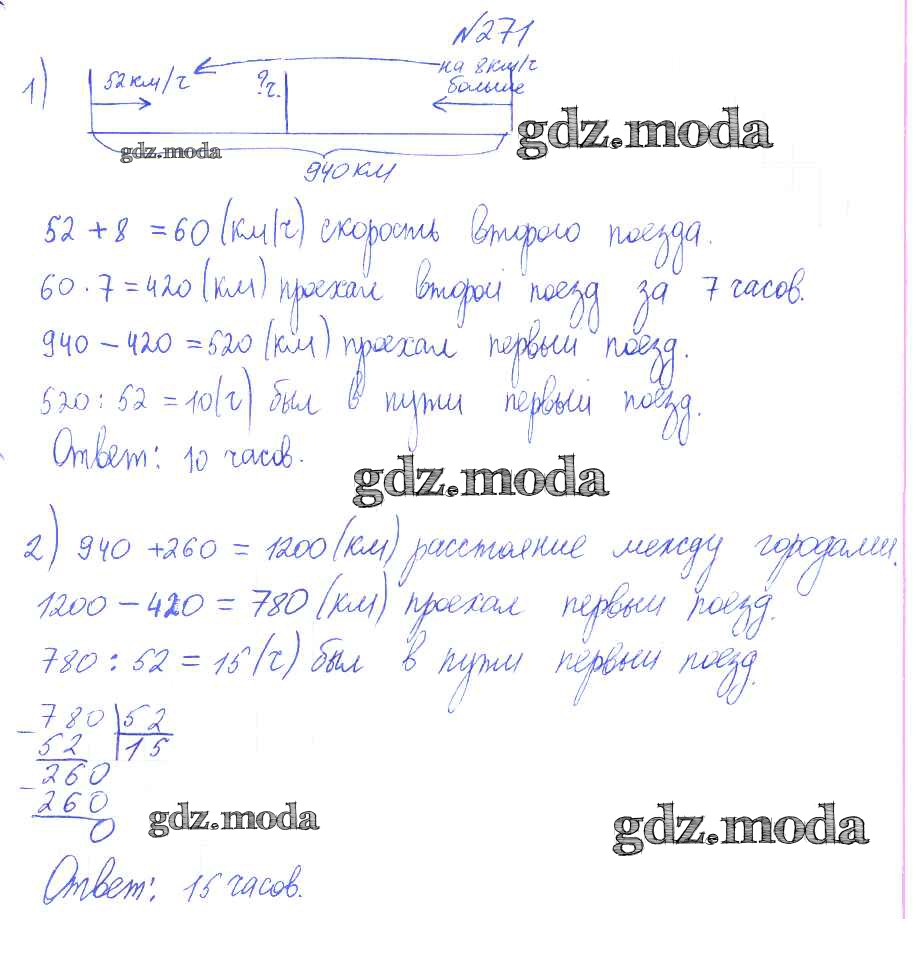 №271
1) 52км/ч ?ч. на 8км/ч
больше
gdz.moda
gdz.moda
940км
52 + 8 = 60 (км/ч) скорость второго поезда.
60 · 7 = 420 (км) проехал второй поезд за 7 часов.
940 – 420 = 520 (км) проехал первый поезд.
520 : 52 = 10 (ч) был в пути первый поезд.
Ответ: 10 часов.
gdz.moda
2) 940 + 260 = 1200 (км) расстояние между городами.
1200 – 420 = 780 (км) проехал первый поезд.
780 : 52 = 15 (ч) был в пути первый поезд.
– 780 | 52
52 | 15
– 260
260
0
gdz.moda
gdz.moda
Ответ: 15 часов.